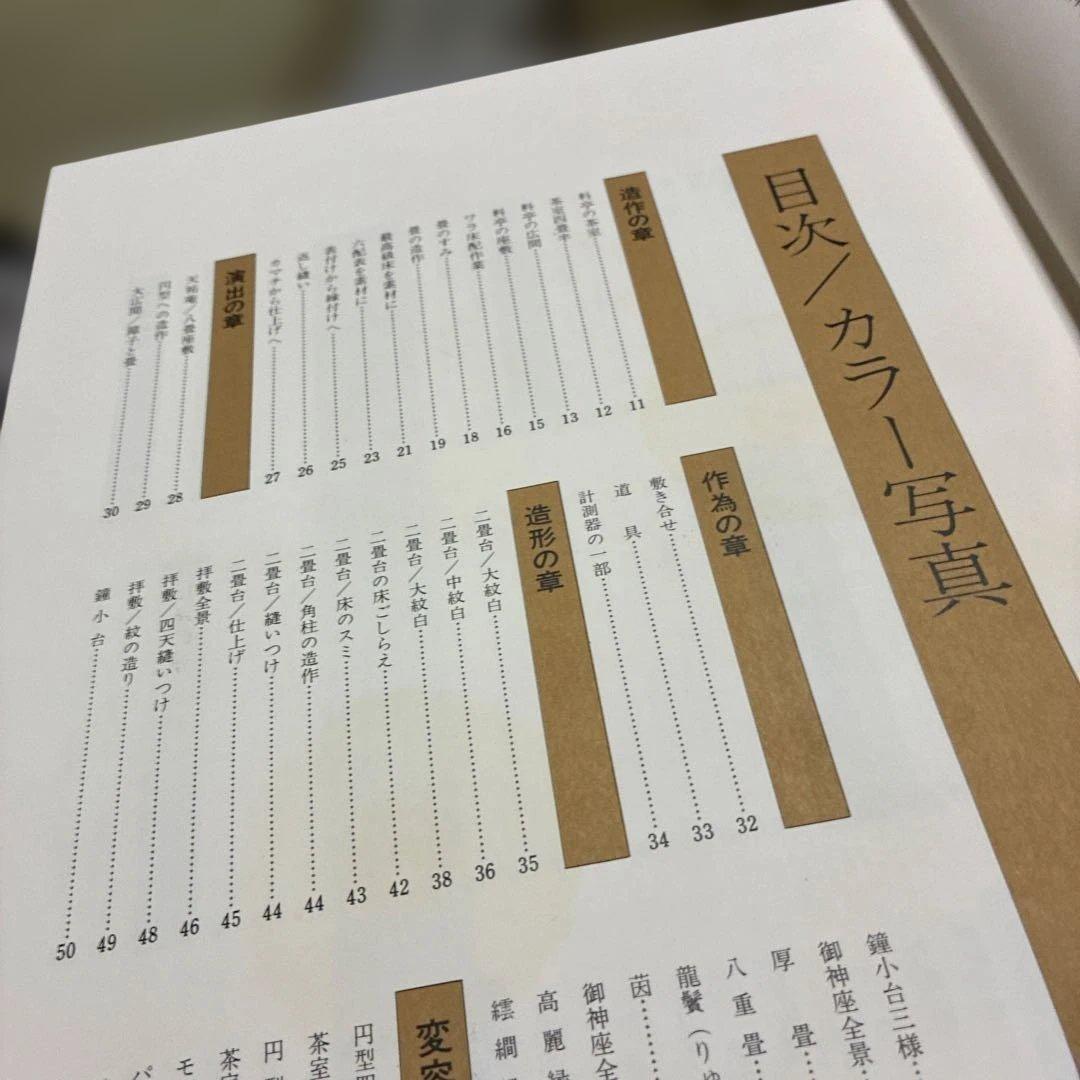 目次/カラー写真
造作の章
料亭の茶室 11
茶室四畳半 12
料亭の広間 13
料亭の座敷 15
ワラ床配作業 16
畳のすみ 18
畳の造作 19
最高級床を素材に 21
六配表を素材に 23
表付けから縁付けへ 25
返し縫い 26
カマチから仕上げへ 27
演出の章
八畳座敷 28
円型への造作 29
大広間/障子と畳 30
作為の章
敷き合せ 32
道具 33
計測器の一部 34
造形の章
二畳台/大紋白 35
二畳台/中紋白 36
二畳台/大紋白 38
二畳台の床ごしらえ 42
二畳台/床のスミ 43
二畳台/角柱の造作 44
二畳台/縫いつけ 44
二畳台/仕上げ 45
拝敷全景 46
拝敷/四天縫いつけ 48
拝敷/紋の造り 49
鐘小台 50
鐘小台三様
御神座全景
厚畳
八重畳
龍鬢(りゅ
茵
御神座全
高麗縁
繧繝
変容
円型四
茶室
円
茶室
モ
パ